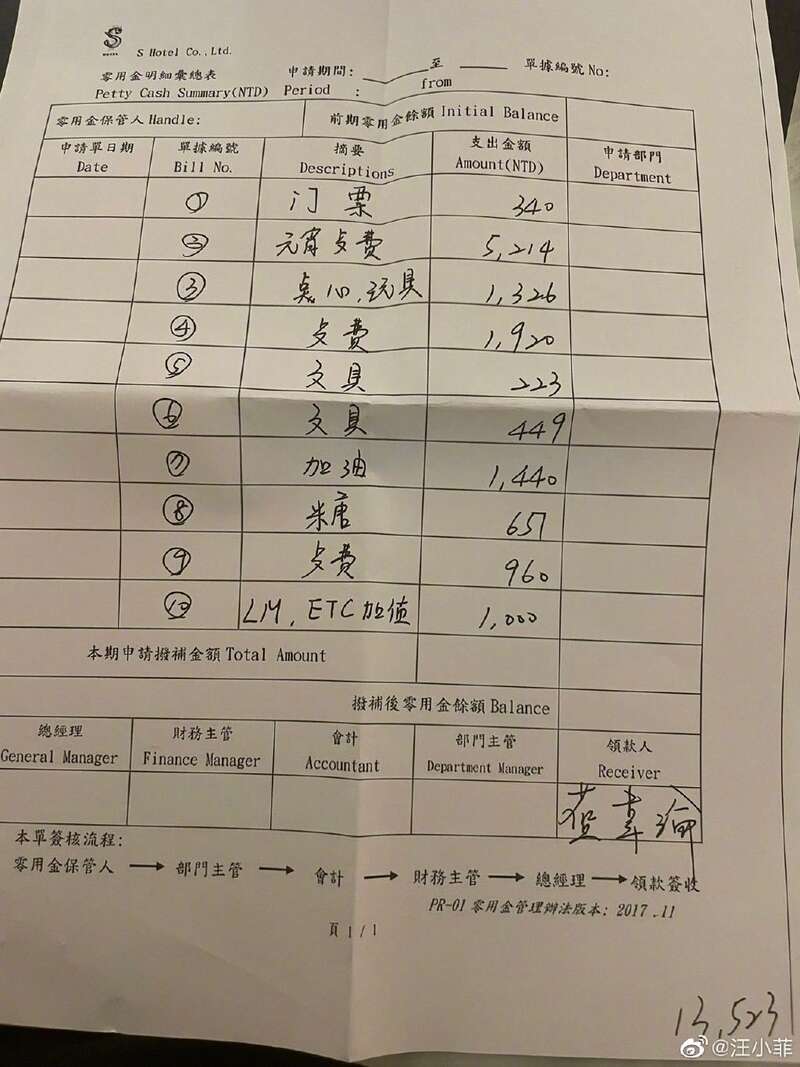 S
HOTEL
S Hotel Co.,Ltd.
零用金明細彙總表 申請期間: 至 單據編號 No:
Petty Cash Summary(NTD) Period : from
零用金保管人 Handle: 前期零用金餘額 Initial Balance
申請單日期 單據編號 摘要 支出金額 申請部門
Date Bill No. Descriptions Amount(NTD) Department
① 门票 340
② 元宵歺費 5,214
③ 点心,玩具 1,326
④ 歺費 1,920
⑤ 文具 223
⑥ 文具 449
⑦ 加油 1,440
⑧ 糖 651
⑨ 歺費 960
⑩ LM, ETC 加值 1,000
本期申請撥補金額 Total Amount
撥補後零用金餘額 Balance
總經理 財務主管 會計 部門主管 領款人
General Manager Finance Manager Accountant Department Manager Receiver
本單簽核流程:
零用金保管人 → 部門主管 → 會計 → 財務主管 → 總經理 → 領款簽收
PR-01 零用金管理辦法版本: 2017 .11
頁 1 / 1
13,523
@汪小菲